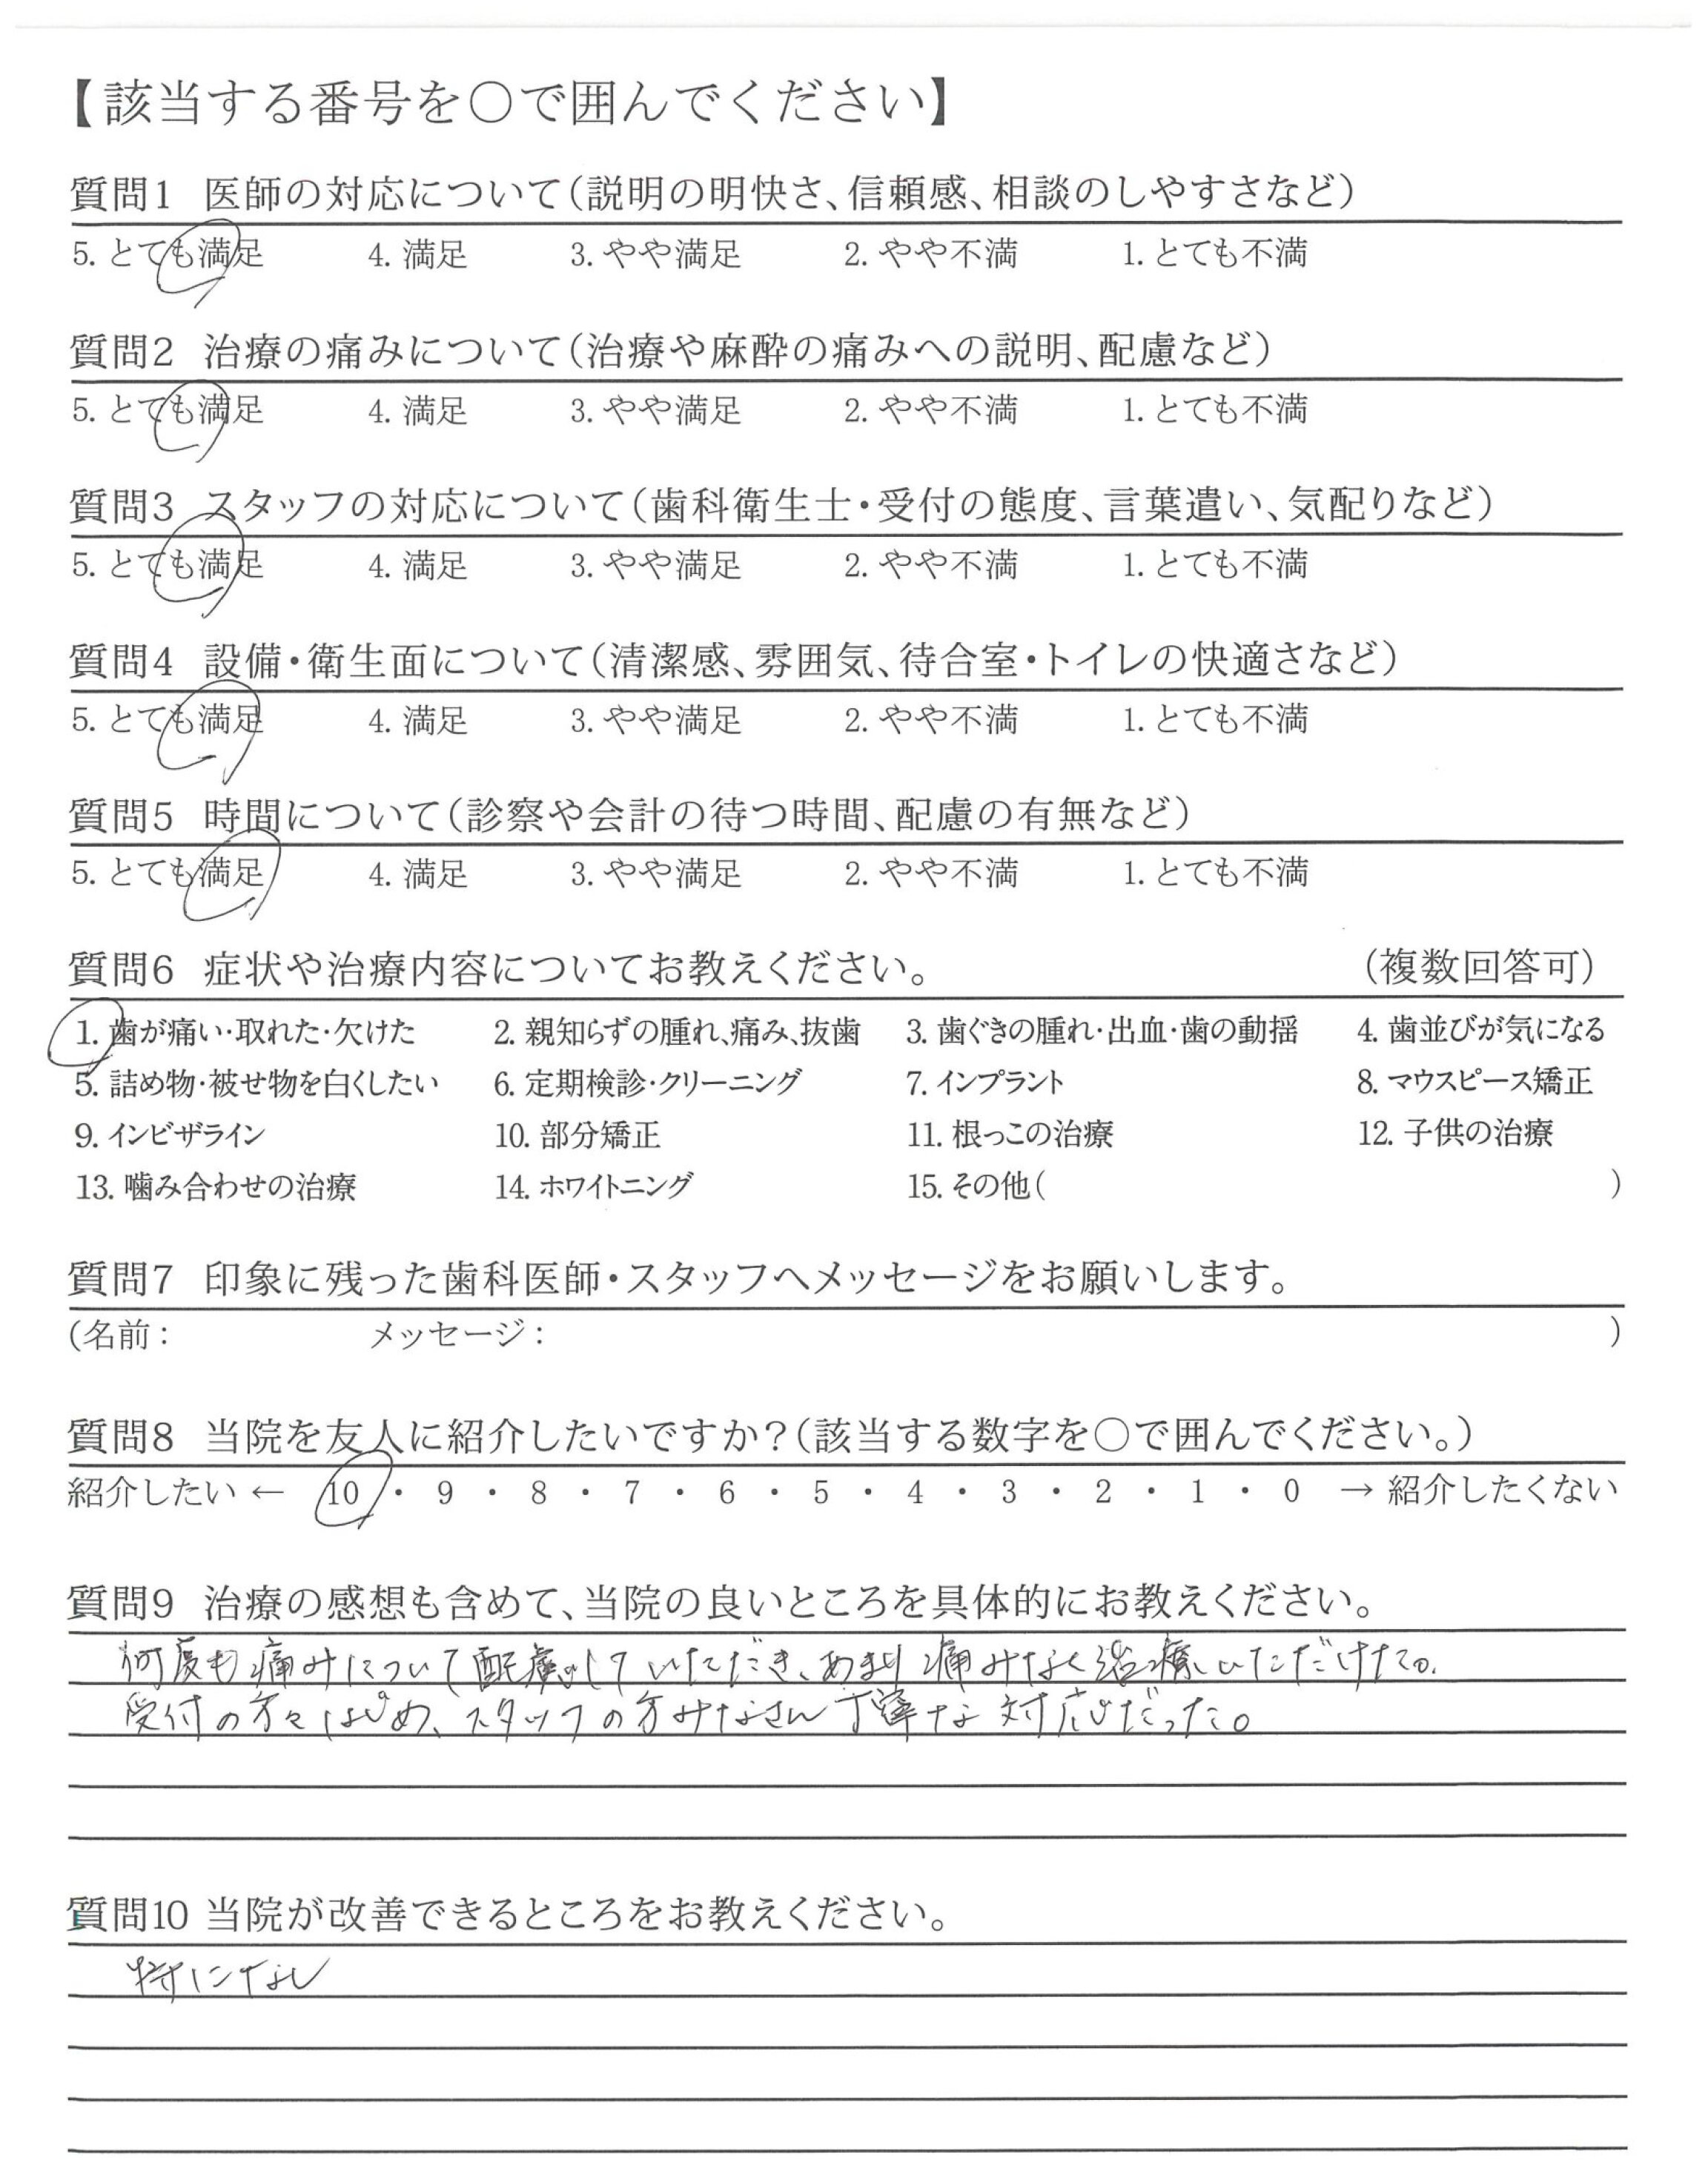 【該当する番号を〇で囲んでください】
質問1 医師の対応について(説明の明快さ、信頼感、相談のしやすさなど)
5. とても満足 4. 満足 3. やや満足 2. やや不満 1. とても不満
質問2 治療の痛みについて(治療や麻酔の痛みへの説明、配慮など)
5. とても満足 4. 満足 3. やや満足 2. やや不満 1. とても不満
質問3 スタッフの対応について(歯科衛生士・受付の態度、言葉遣い、気配りなど)
5. とても満足 4. 満足 3. やや満足 2. やや不満 1. とても不満
質問4 設備・衛生面について(清潔感、雰囲気、待合室・トイレの快適さなど)
5. とても満足 4. 満足 3. やや満足 2. やや不満 1. とても不満
質問5 時間について(診察や会計の待つ時間、配慮の有無など)
5. とても満足 4. 満足 3. やや満足 2. やや不満 1. とても不満
質問6 症状や治療内容についてお教えください。 (複数回答可)
1. 歯が痛い・取れた・欠けた 2. 親知らずの腫れ、痛み、抜歯 3. 歯ぐきの腫れ・出血・歯の動揺 4. 歯並びが気になる
5. 詰め物・被せ物を白くしたい 6. 定期検診・クリーニング 7. インプラント 8. マウスピース矯正
9. インビザライン 10. 部分矯正 11. 根っこの治療 12. 子供の治療
13. 噛み合わせの治療 14. ホワイトニング 15. その他( )
質問7 印象に残った歯科医師・スタッフへメッセージをお願いします。
(名前: メッセージ: )
質問8 当院を友人に紹介したいですか?(該当する数字を〇で囲んでください。)
紹介したい ← 10 ・ 9 ・ 8 ・ 7 ・ 6 ・ 5 ・ 4 ・ 3 ・ 2 ・ 1 ・ 0 → 紹介したくない
質問9 治療の感想も含めて、当院の良いところを具体的にお教えください。
何度も痛みについて配慮していただき、あまり痛みなく治療いただけた。
受付の方をはじめ、スタッフの方みなさん丁寧な対応だった。
質問10 当院が改善できるところをお教えください。
特になし